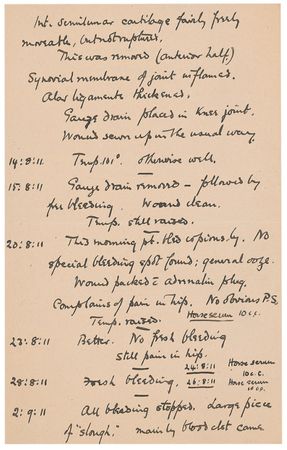 Int. semilunar cartilage fairly freely
moveable, but not ruptured.
This was removed (anterior half.)
Synovial membrane of joint inflamed.
Alar ligaments thickened.
Gauze drain placed in knee joint.
Wound sewn up in the usual way.
14:8:11 Temp. 101°. otherwise well.
15:8:11 Gauze drain removed – followed by
free bleeding. Wound clean.
Temp. still raised.
20:8:11 This morning pt. bled copiously. No
special bleeding spot found; general ooze.
Wound packed c̄ adrenalin plug.
Complains of pain in hip. No obvious P.S.
Temp. raised. Horse serum 10 c.c.
23:8:11 Better. No fresh bleeding
still pain in hip.
24:8:11 Horse serum 10 c.c.
28:8:11 Fresh bleeding. 26:8:11 Horse serum 10 c.c.
2:9:11 All bleeding stopped. Large piece
of "slough," mainly blood clot came